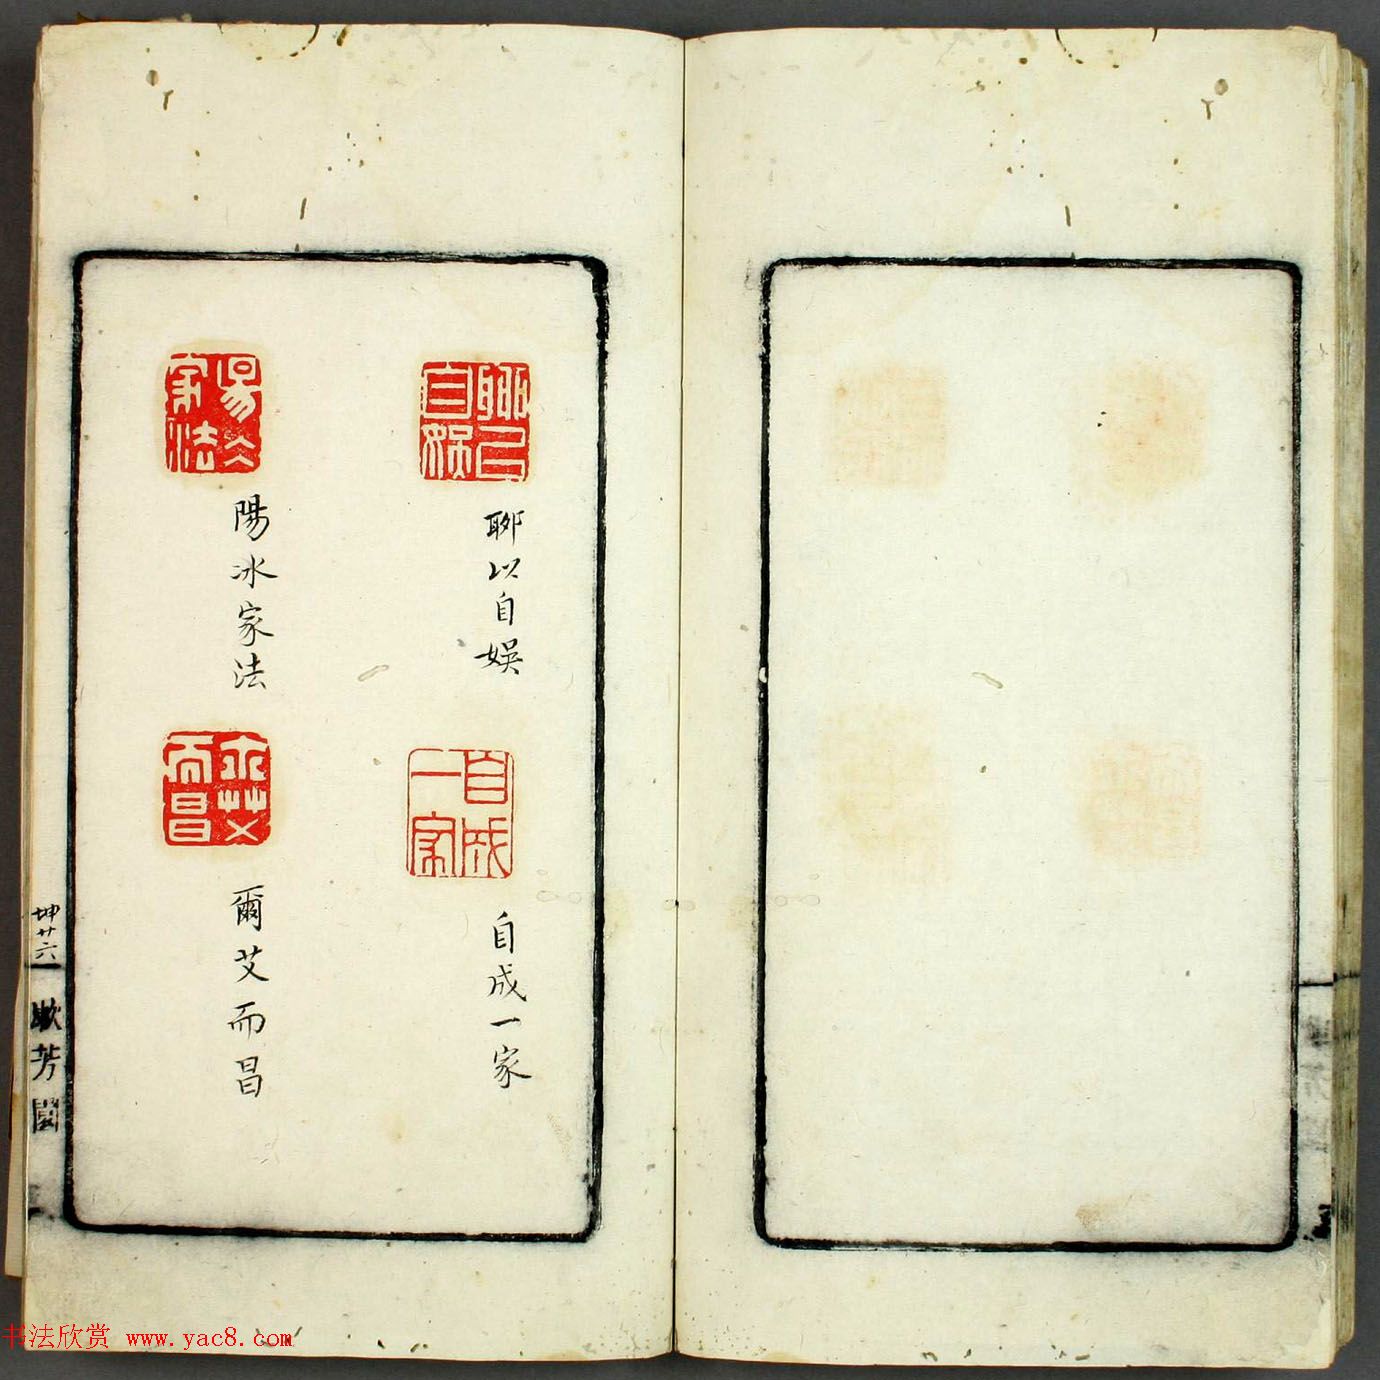 聊以自娛
聊以自娛
自成一家
自成一家
陽冰家法
陽冰家法
爾艾而昌
爾艾而昌
坤廿六
漱芳園
书法欣赏 www.yac8.com